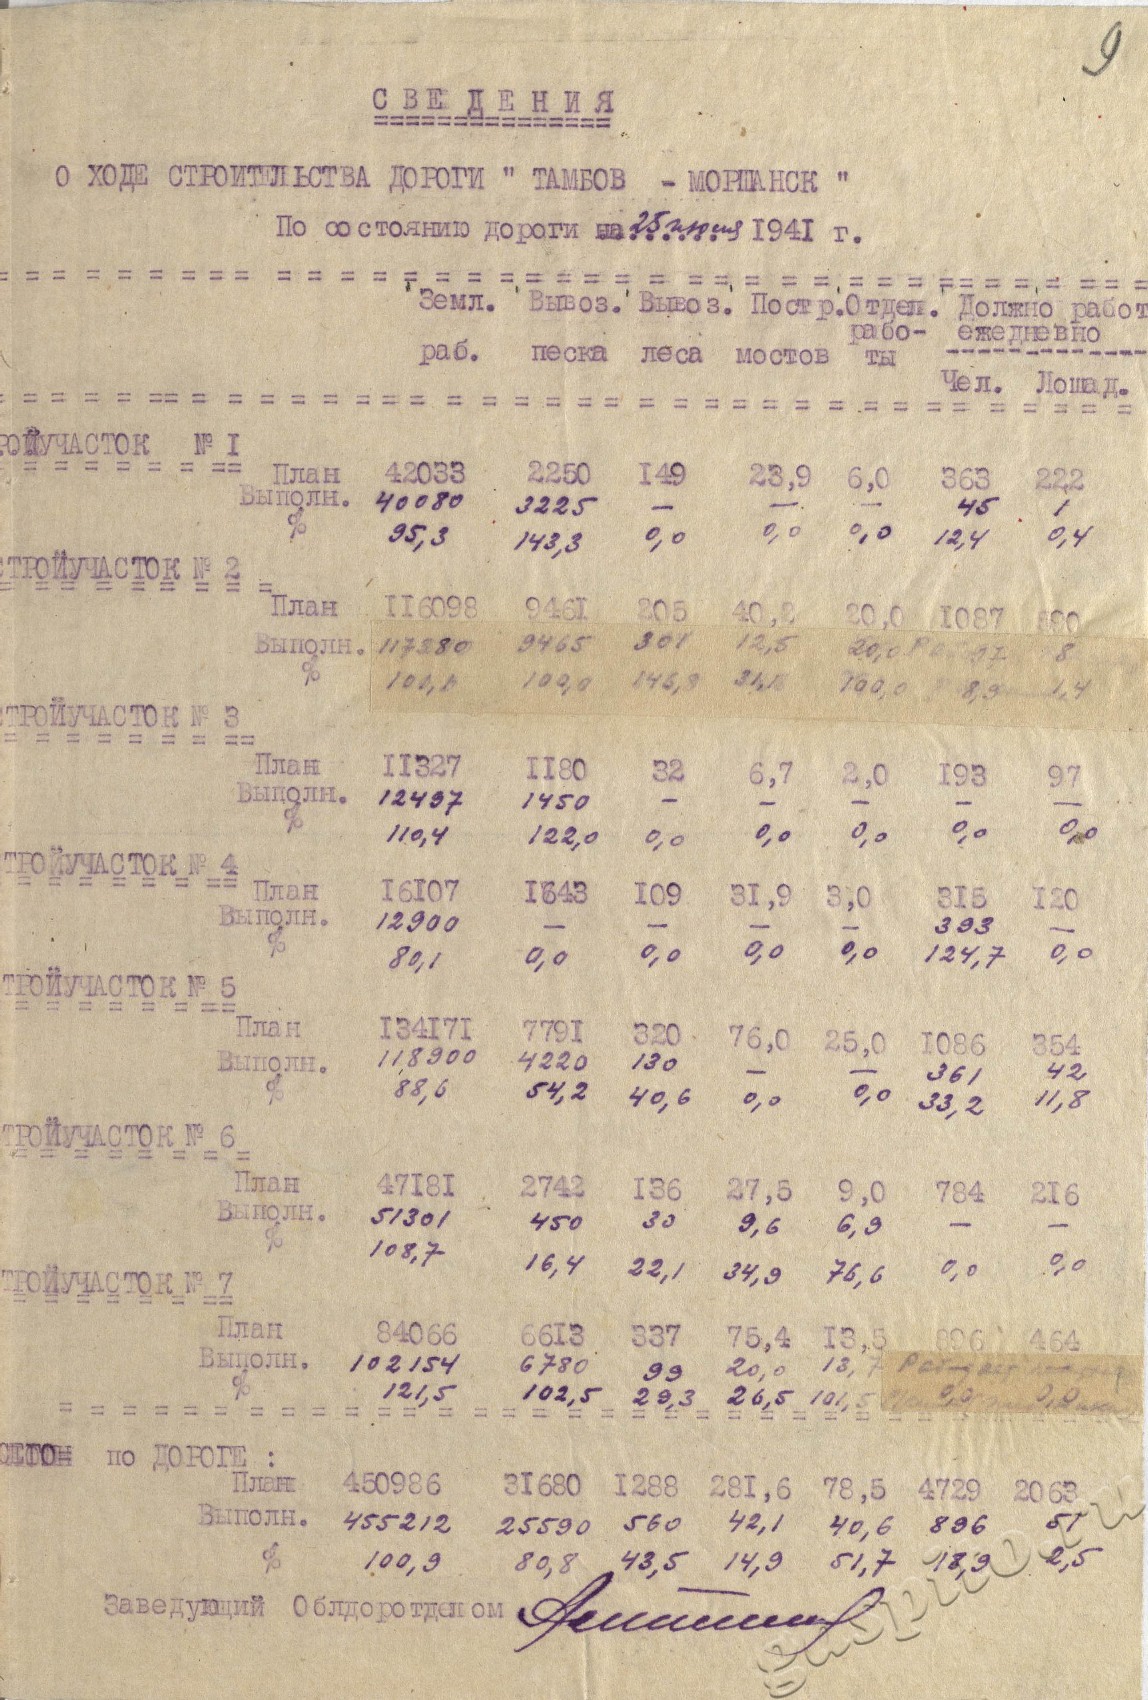 9
СВЕДЕНИЯ
О ХОДЕ СТРОИТЕЛЬСТВА ДОРОГИ " ТАМБОВ - МОРШАНСК "
По состоянию дороги на 25 июня 1941 г.
Земл. Вывоз. Вывоз. Постр. Отдел. Должно работ
рабо- ежедневно
раб. песка леса мостов ты
Чел. Лошад.
РОЙУЧАСТОК № I
План 42033 2250 I49 23,9 6,0 363 222
Выполн. 40080 3225 — — — 45 1
% 95,3 143,3 0,0 0,0 0,0 12,4 0,4
СТРОЙУЧАСТОК № 2
План II6098 946I 205 40,2 20,0 I087 590
Выполн. 117280 9465 301 12,5 20,0 97 8
% 101,1 100,0 146,8 31,1 100,0 8,9 1,4
СТРОЙУЧАСТОК № 3
План II327 II80 32 6,7 2,0 I93 97
Выполн. 12497 1450 — — — — —
% 110,4 122,0 0,0 0,0 0,0 0,0 0,0
ТРОЙУЧАСТОК № 4
План I6I07 I643 I09 3I,9 3,0 3I5 I20
Выполн. 12900 — — — — 393 —
% 80,1 0,0 0,0 0,0 0,0 124,7 0,0
ТРОЙУЧАСТОК № 5
План I34I7I 779I 320 76,0 25,0 I086 354
Выполн. 118900 4220 130 — — 361 42
% 88,6 54,2 40,6 0,0 0,0 33,2 11,8
ТРОЙУЧАСТОК № 6
План 47I8I 2742 I36 27,5 9,0 784 2I6
Выполн. 51301 450 30 9,6 6,9 — —
% 108,7 16,4 22,1 34,9 76,6 0,0 0,0
ТРОЙУЧАСТОК № 7
План 84066 66I3 337 75,4 I3,5 896 464
Выполн. 102154 6780 99 20,0 13,7
% 121,5 102,5 29,3 26,5 101,5 0,0 0,0
по ДОРОГЕ :
План 450986 3I680 I288 28I,6 78,5 4729 2063
Выполн. 455212 25590 560 42,1 40,6 896 51
% 100,9 80,8 43,5 14,9 51,7 18,9 2,5
Заведующий Облдоротделом
gaspito.ru